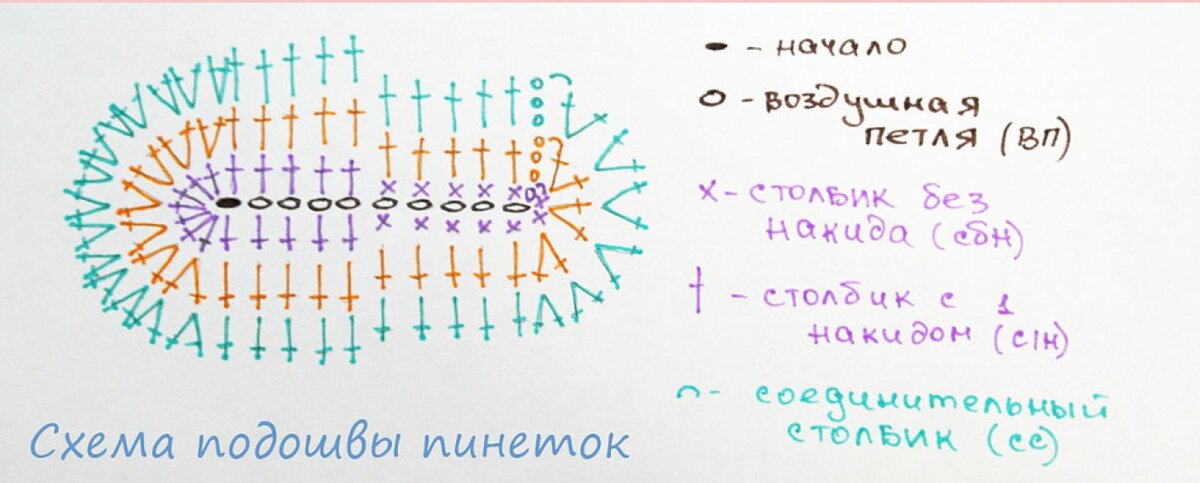 - начало
- воздушная
петля (вп)
х - столбик без
накида (сбн)
† - столбик с 1
накидом (с1н)
- соединительный
столбик (сс)
Схема подошвы пинеток